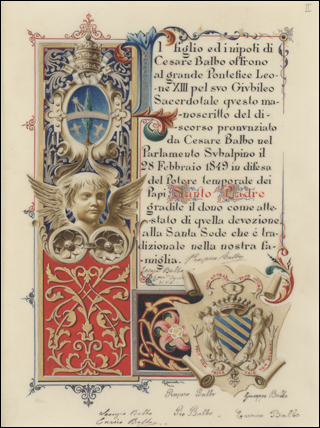 II
Il figlio ed i nipoti di
Cesare Balbo offrono
al grande Pontefice Leo-
ne XIII pel svo Givbileo
Sacerdotale qvesto ma-
noscritto del di-
scorso pronvnziato
da Cesare Balbo nel
Parlamento Svbalpino il
28 Febbraio 1849 in difesa
del Potere temporale dei
Papi Santo Padre
gradite il dono come atte-
stato di qvella devozione
alla Santa Sede che è tra-
dizionale nella nostra fa-
miglia.
Prospero Balbo
Balbo
Prospero Balbo
Giuseppe Balbo
Balbo
Pio Balbo
Balbo
Enrico Balbo